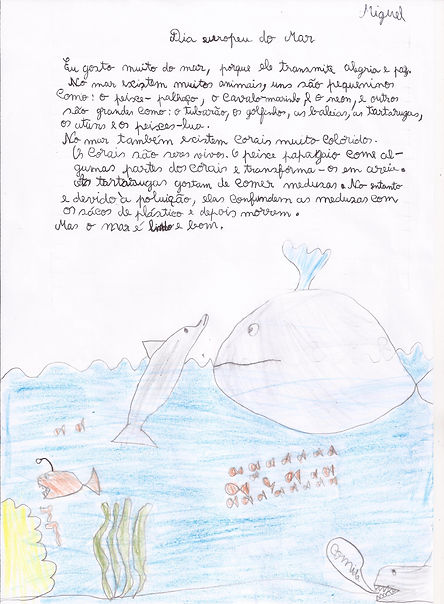 Miguel
Dia europeu do Mar
Eu gosto muito do mar, porque ele transmite alegria e paz.
No mar existem muitos animais, uns são pequeninos
como: o peixe-palhaço, o cavalo-marinho e o neon, e outros
são grandes como: o tubarão, os golfinhos, as baleias, as tartarugas,
os atuns e os peixes-lua.
No mar também existem corais muito colorido.
Os corais são seres vivos. O peixe papagaio come al-
gumas partes dos corais e transforma-os em areia.
As tartarugas gostam de comer medusas. No entanto
e devido à poluição, elas confundem as medusas com
os sácos de plástico e depois morrem.
Mas o mar é lindo e bom.
Comida